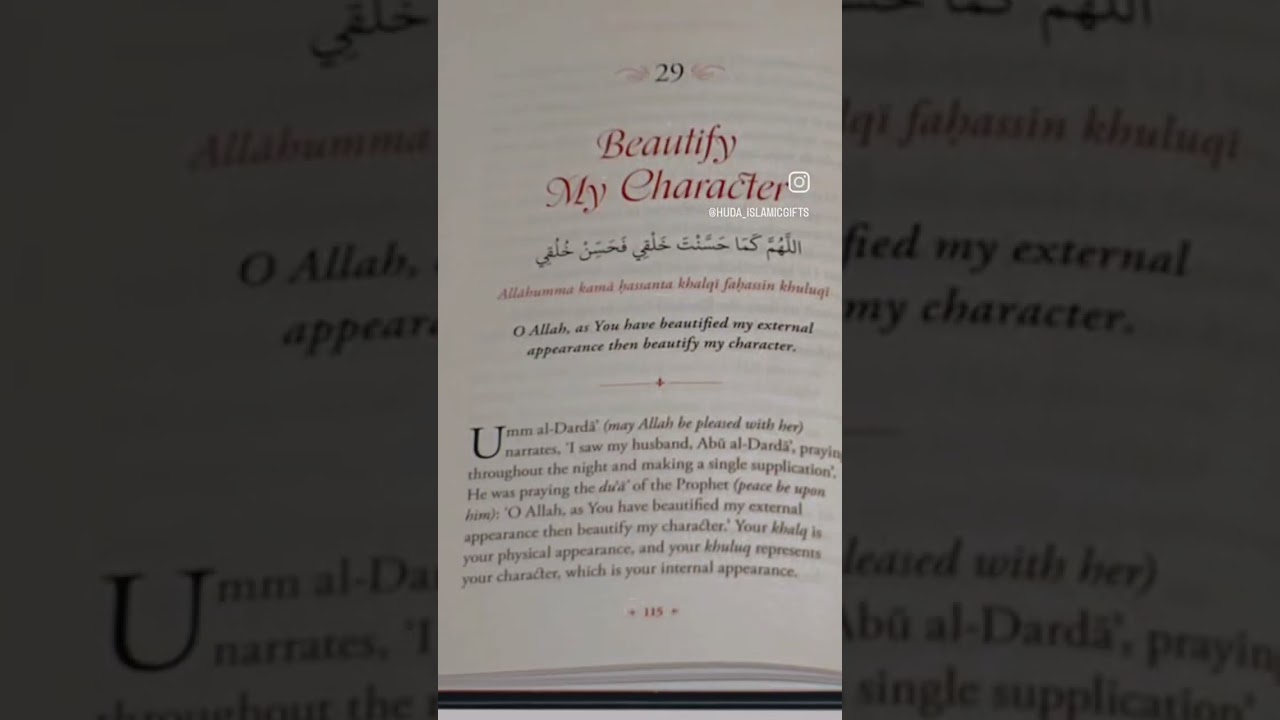 29
Beautify
My Character
@HUDA_ISLAMICGIFTS
اللَّهُمَّ كَمَا حَسَّنْتَ خَلْقِي فَحَسِّنْ خُلُقِي
Allāhumma kamā ḥassanta khalqī faḥassin khuluqī
O Allah, as You have beautified my external
appearance then beautify my character.
Umm al-Dardā’ (may Allah be pleased with her)
narrates, ‘I saw my husband, Abū al-Dardā’, prayin
throughout the night and making a single supplication’.
He was praying the du‘ā’ of the Prophet (peace be upon
him): ‘O Allah, as You have beautified my external
appearance then beautify my character.’ Your khalq is
your physical appearance, and your khuluq represents
your character, which is your internal appearance.
115